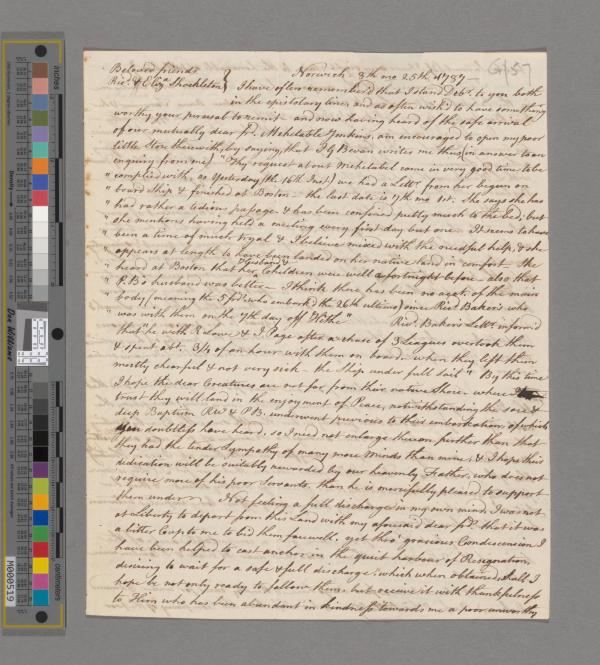 Beloved friends Norwich 8th mo 25th 1789 G157
Richd. & Eliza. Shackleton} I have often remembered that I stand debtr. to you both
in the epistolary line, and as often wish'd to have something
worthy your perusal to remit and now having heard of the safe arrival
of our mutually dear frd. Mehetable Jenkins, am encouraged to open my poor
little Store therewith, by saying, that J G Bevan writes me thus (in answer to an
enquiry from me) "Thy request about Mehetabel came in very good time to be
" complied with, as Yesterday (the 16th Inst.) we had a Lettr. from her begun on
" board Ship & finished at Boston the last date is 7th mo 1st. She says she has
" had rather a tedious passage & has been confined pretty much to the Bed, but
" she mentions having held a meeting every first day but one It seems to have
" been a time of much tryal & I believe mixed with the needful help, & she
" appears at length to have been landed on her native land in comfort She
" heard at Boston that her husband & Children were well a fortnight before also that
" P.B's husband was better I think there has been no acct. of the main
" body, (meaning the 5 frds. who embark'd the 26th ultimo) since Richd. Baker's who
" was with them on the 7th day off Withe" Richd. Baker's Lettr. inform'd
that "he with R Lowe & J. Page after a chase of 3 Leagues overtook them
& spent abt. 3/4 of an hour with them on board when they left them
mostly chearful & not very sick the Ship under full Sail" By this time
I hope the dear Creatures are not far from their native Shore, where I
trust they will land in the enjoyment of Peace, notwithstanding the sore &
deep Baptism RW & P.B. underwent previous to their embarkation, of which
you doubtless have heard, so I need not enlarge thereon further than that
they had the tender Sympathy of many more Minds than mine, & I hope their
dedication will be suitably rewarded by our heavenly Father, who does not
require more of his poor Servants, than he is mercifully pleased to support
them under Not feeling a full discharge in my own mind, I was not
at Liberty to depart from this Land with my aforesaid dear frds. tho' it was
a bitter Cup to me to bid them farewell, yet thro' gracious Condescension I
have been helped to cast anchor in the quiet harbour of Resignation,
desiring to wait for a safe & full discharge, which when obtained, shall I
hope be not only ready to follow them, but receive it with thankfulness
to Him who has been abundant in kindness towards me a poor unworthy
inches
centimeters
Don Williams
M000519